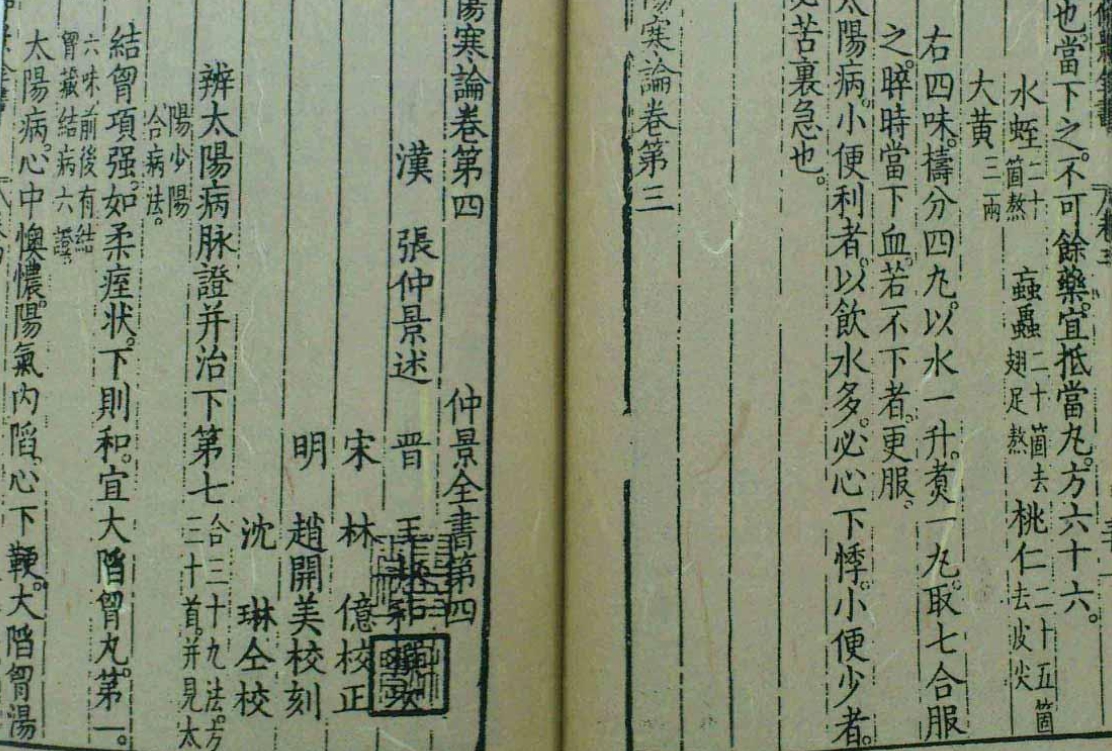 也當下之。不可餘藥。宜抵當丸。方六十六。
水蛭二十箇熬 蝱蟲二十箇去翅足熬 桃仁二十五箇去皮尖
大黃三兩
右四味。擣分四丸。以水一升。煑一丸。取七合服
之。晬時當下血。若不下者。更服。
太陽病。小便利者。以飲水多。必心下悸。小便少者。
必苦裏急也。
傷寒論卷第三
傷寒論卷第四 仲景全書第四
漢 張仲景述 晋 王叔和撰次
宋 林 億校正
明 趙開美校刻
沈 琳仝校
辨太陽病脉證并治下第七合三十九法。方三十首。并見太
陽少陽合病法。
結胷項强。如柔痓状。下則和。宜大陷胷丸。第一。
六味前後有結胷藏結病六證。
太陽病。心中懊憹。陽氣內陷。心下鞕。大陷胷湯